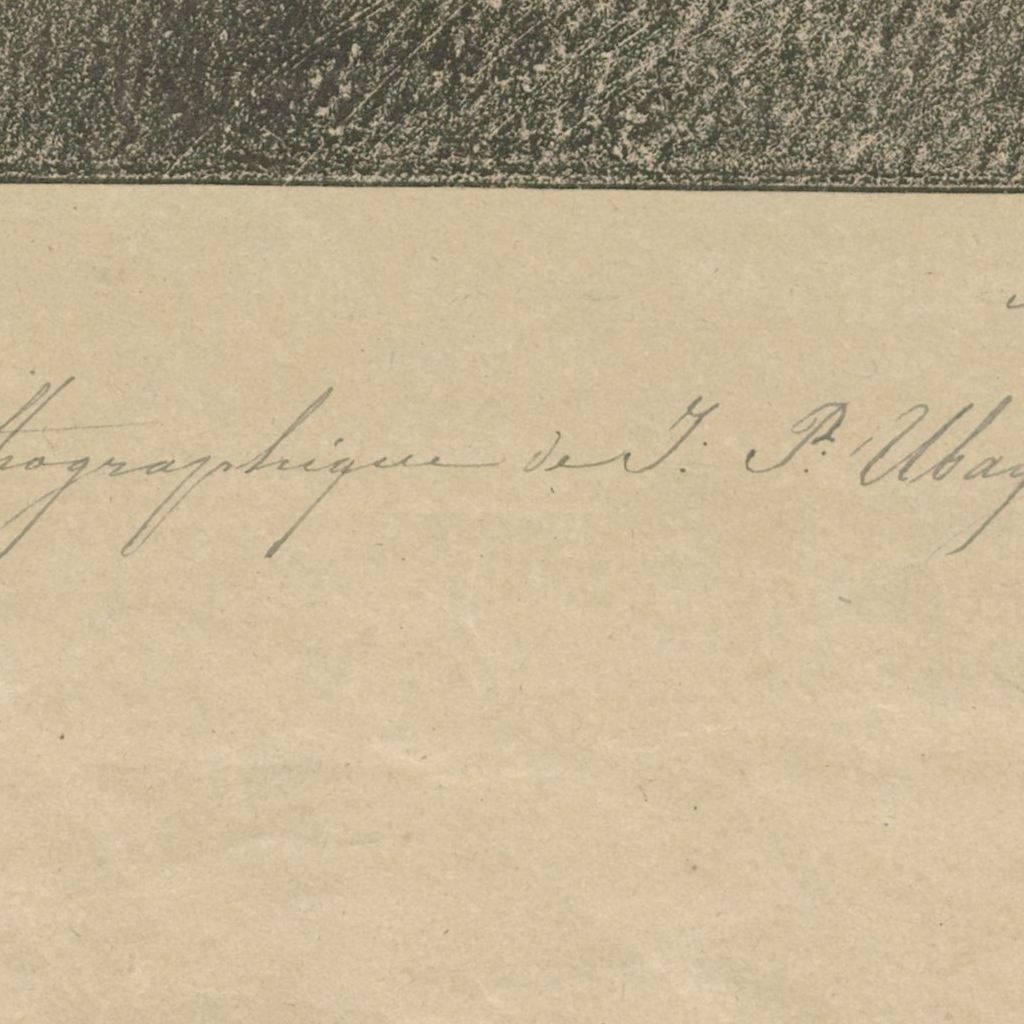 thographique de J. P.t Ubag